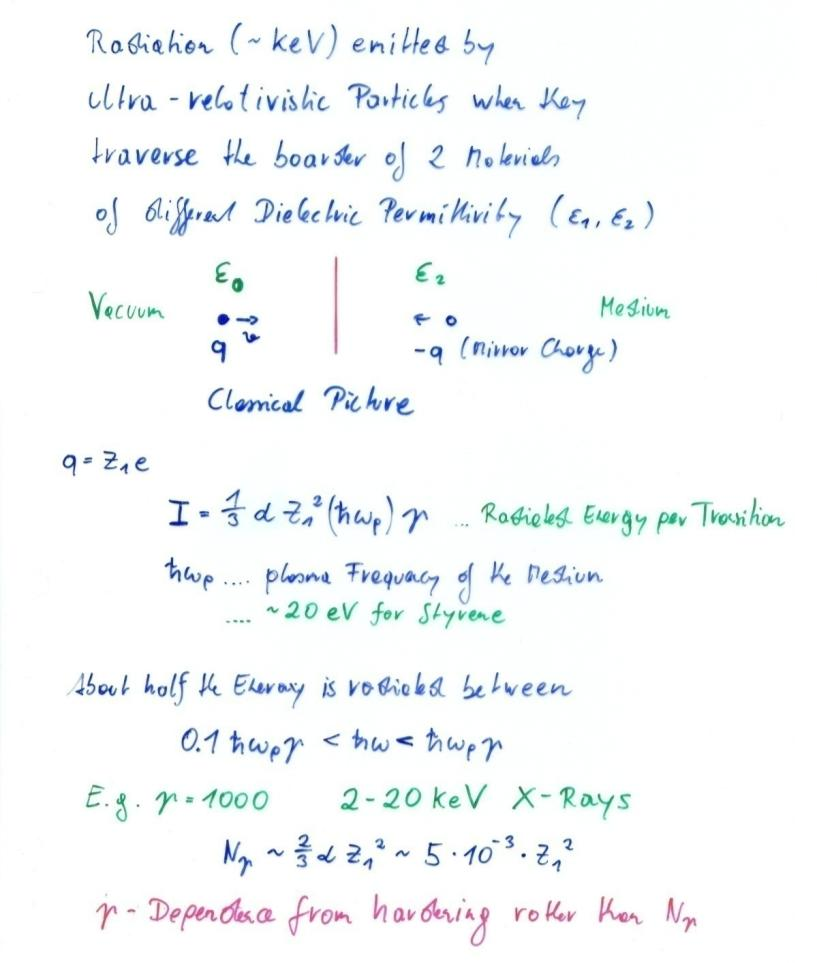 Radiation (~ keV) emitted by
ultra-relativistic Particles when they
traverse the boarder of 2 Materials
of different Dielectric Permittivity (ε₁, ε₂)
ε₀ ε₂
Vacuum q v -q (Mirror Charge) Medium
Classical Picture
q = Z₁e
I = 1/3 α Z₁² (ħωp) γ ... Radiated Energy per Transition
ħωp .... plasma Frequency of the Medium
.... ~20 eV for Styrene
About half the Energy is radiated between
0.1 ħωpγ < ħω < ħωpγ
E.g. γ = 1000 2-20 keV X-Rays
Nγ ~ 2/3 α Z₁² ~ 5·10⁻³·Z₁²
γ - Dependence from hardering rather than Nγ